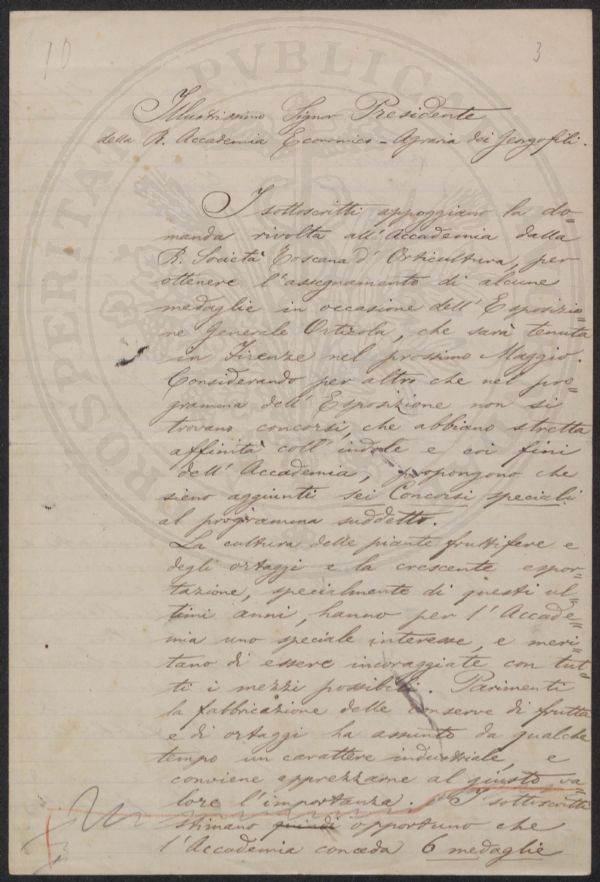 10
3
Illustrissimo Signor Presidente
della R. Accademia Economico-Agraria dei Georgofili.
I sottoscritti appoggiano la do=
manda rivolta all'Accademia dalla
R. Società Toscana d'Orticultura, per
ottenere l'assegnamento di alcune
medaglie in occasione dell'Esposizio=
ne Generale Orticola, che sarà tenuta
in Firenze nel prossimo Maggio.
Considerando per altro che nel pro=
gramma dell'Esposizione non si
trovano concorsi, che abbiano stretta
affinità coll'indole e coi fini
dell'Accademia, propongono che
sieno aggiunti sei Concorsi speciali
al programma suddetto.
La cultura delle piante fruttifere e
degli ortaggi e la crescente espor=
tazione, specialmente di questi ul=
timi anni, hanno per l'Accade=
mia uno speciale interesse, e meri=
tano di essere incoraggiate con tut=
ti i mezzi possibili. Parimenti
la fabbricazione delle conserve di frutta
e di ortaggi ha assunto da qualche
tempo un carattere industriale, e
conviene apprezzarne al giusto va=
lore l'importanza. I sottoscritti
stimano quindi opportuno che
l'Accademia conceda 6 medaglie
PROSPERITATI PUBLICAE